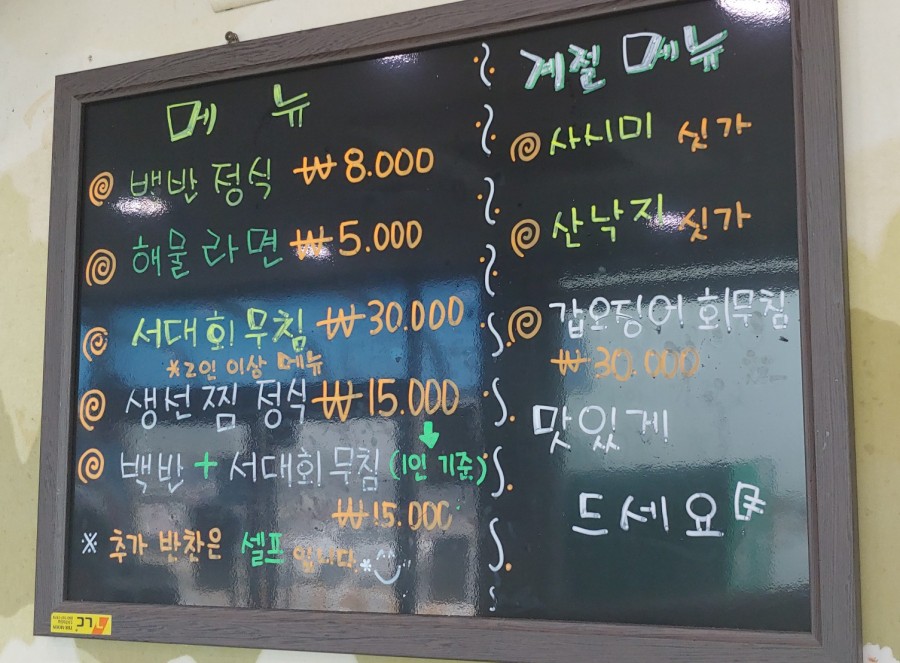 메 뉴
백반 정식 ₩8.000
해물 라면 ₩5.000
서대회 무침 ₩30.000
*2인 이상 메뉴
생선찜 정식 ₩15.000
백반 + 서대회 무침 (1인 기준)
₩15.000
※ 추가 반찬은 셀프 입니다.*^^
계절 메뉴
사시미 싯가
산낙지 싯가
갑오징어 회무침
₩30.000
맛있게
드세요